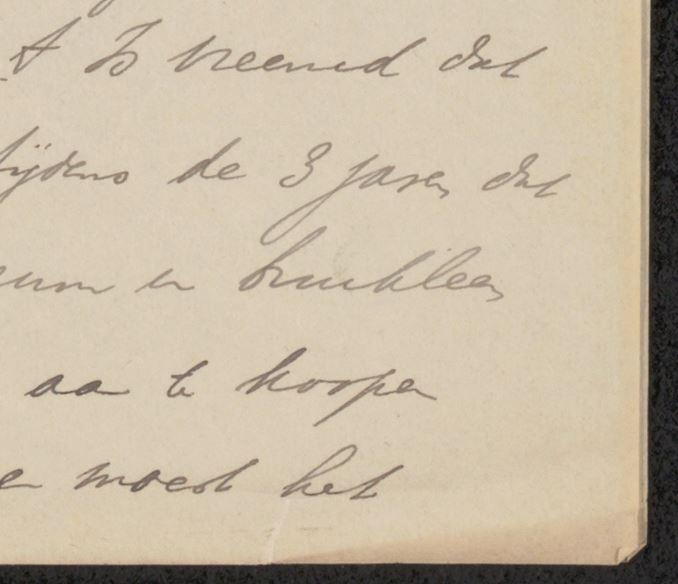 't Is vreemd dat
tijdens de 3 jaren dat
in bruikleen
aan te koopen
moest het